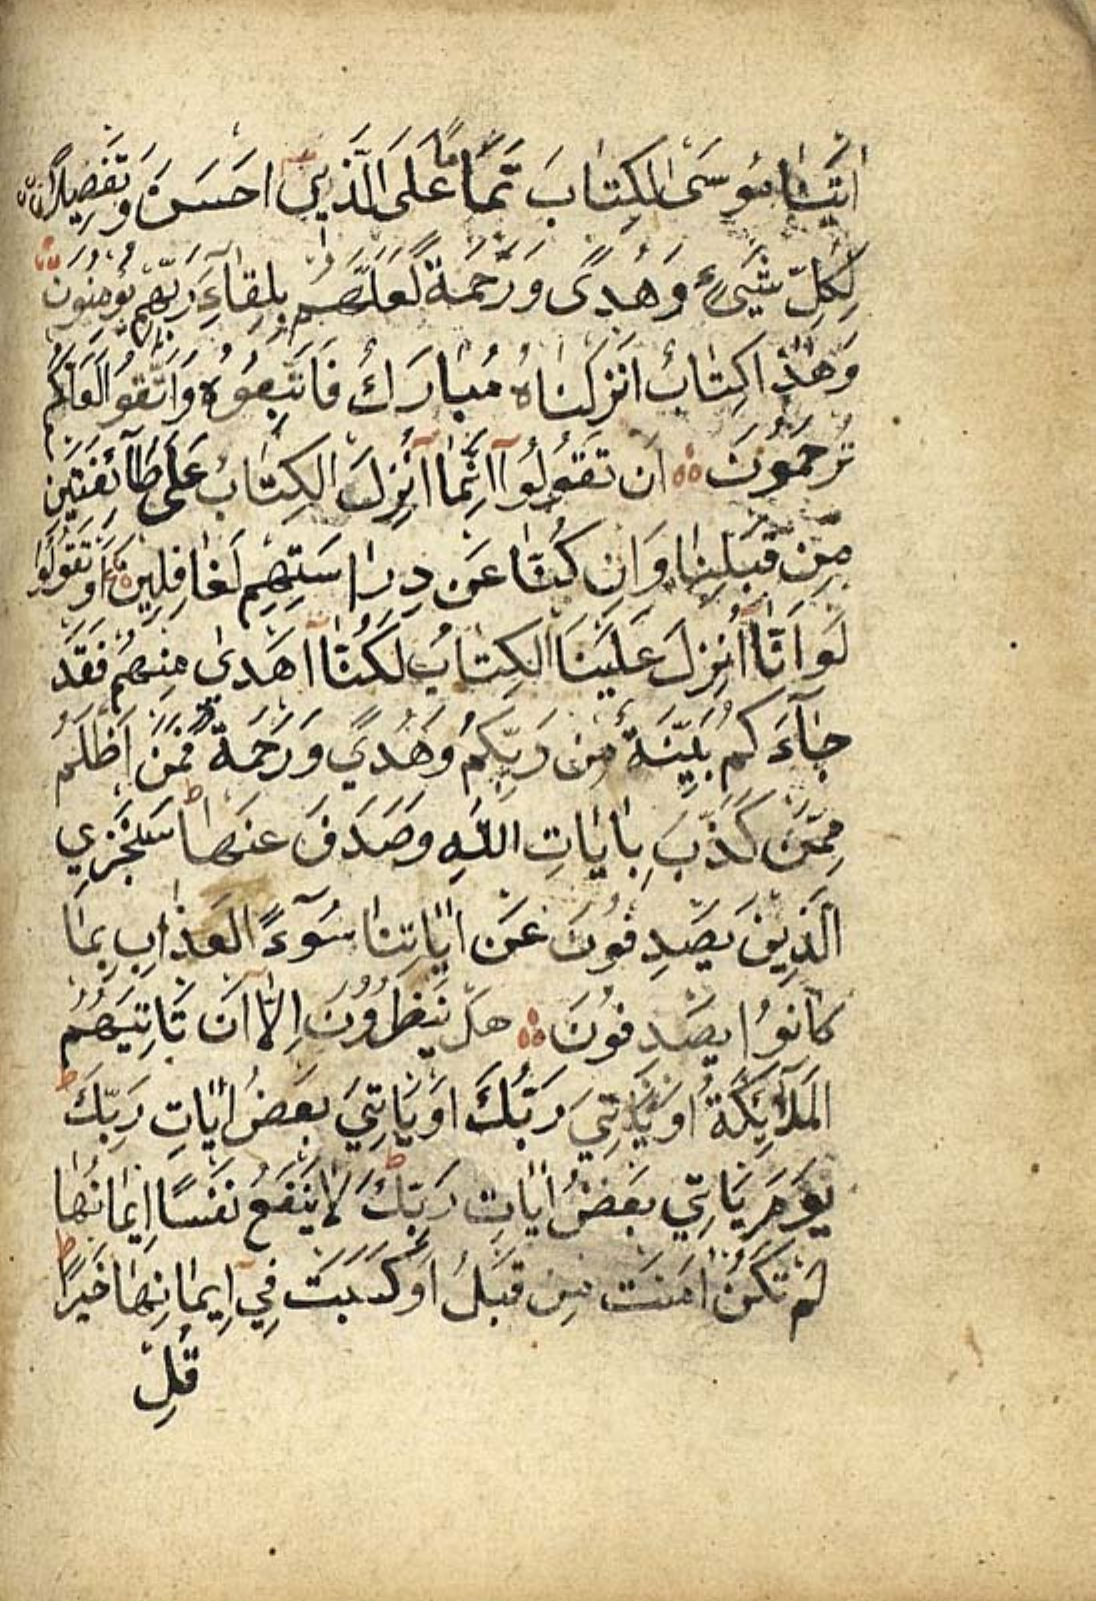 اٰتَيْنَا مُوسَى الْكِتَابَ تَمَامًا عَلَى الَّذِي اَحْسَنَ وَتَفْصِيلًا
لِكُلِّ شَيْءٍ وَهُدًى وَرَحْمَةً لَعَلَّهُمْ بِلِقَاۤءِ رَبِّهِمْ يُؤْمِنُونَ
وَهٰذَا كِتَابٌ اَنْزَلْنَاهُ مُبَارَكٌ فَاتَّبِعُوهُ وَاتَّقُوا لَعَلَّكُمْ
تُرْحَمُونَ اَنْ تَقُولُوۤا اِنَّمَاۤ اُنْزِلَ الْكِتَابُ عَلٰى طَاۤئِفَتَيْنِ
مِنْ قَبْلِنَا وَاِنْ كُنَّا عَنْ دِرَاسَتِهِمْ لَغَافِلِينَ اَوْ تَقُولُوا
لَوْ اَنَّاۤ اُنْزِلَ عَلَيْنَا الْكِتَابُ لَكُنَّاۤ اَهْدٰى مِنْهُمْ فَقَدْ
جَاۤءَكُمْ بَيِّنَةٌ مِنْ رَبِّكُمْ وَهُدًى وَرَحْمَةٌ فَمَنْ اَظْلَمُ
مِمَّنْ كَذَّبَ بِاٰيَاتِ اللّٰهِ وَصَدَفَ عَنْهَا سَنَجْزِي
الَّذِينَ يَصْدِفُونَ عَنْ اٰيَاتِنَا سُوۤءَ الْعَذَابِ بِمَا
كَانُوا يَصْدِفُونَ هَلْ يَنْظُرُونَ اِلَّاۤ اَنْ تَاْتِيَهُمُ
الْمَلٰۤئِكَةُ اَوْ يَاْتِيَ رَبُّكَ اَوْ يَاْتِيَ بَعْضُ اٰيَاتِ رَبِّكَ
يَوْمَ يَاْتِي بَعْضُ اٰيَاتِ رَبِّكَ لَا يَنْفَعُ نَفْسًا اِيمَانُهَا
لَمْ تَكُنْ اٰمَنَتْ مِنْ قَبْلُ اَوْ كَسَبَتْ فِيۤ اِيمَانِهَا خَيْرًا
قُلِ